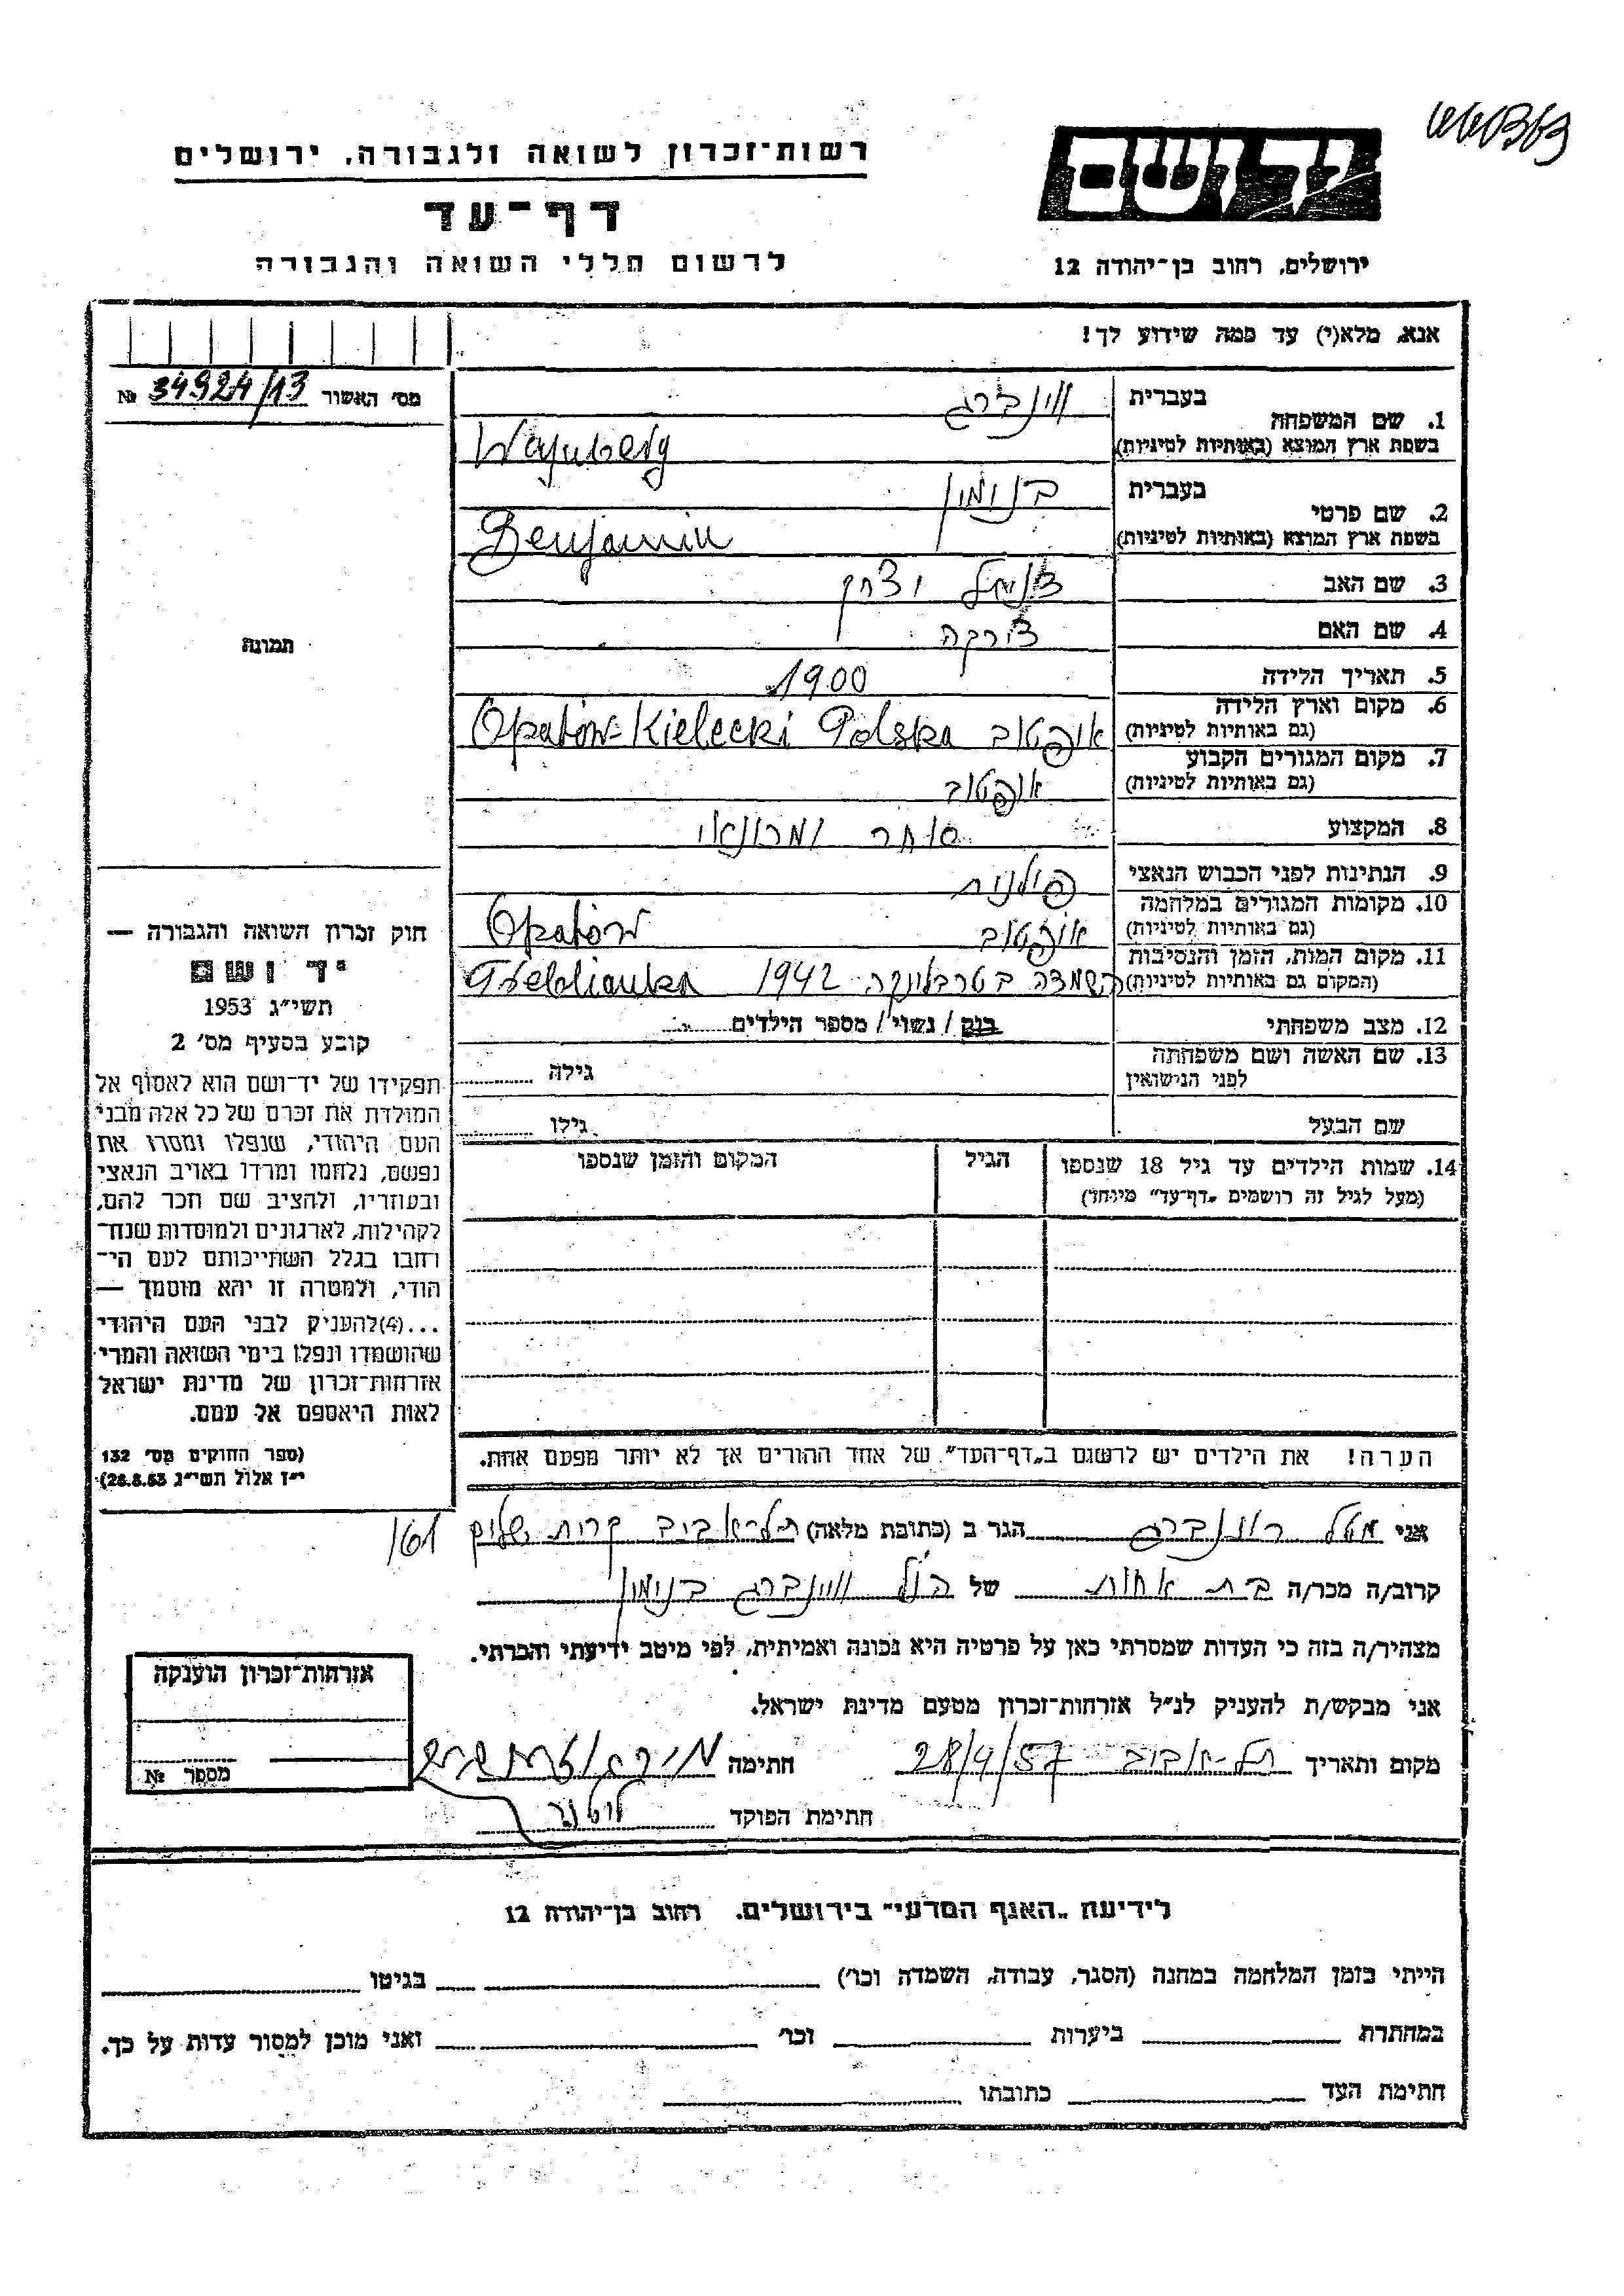 רשות־זכרון לשואה ולגבורה, ירושלים
דף־עד
לרשום חללי השואה והגבורה
יד ושם
ירושלים, רחוב בן־יהודה 12
אנא, מלא(י) עד כמה שידוע לך!
מס׳ האשור № 34924/13
1. שם המשפחה
בעברית ווינברג
בשפת ארץ המוצא (באותיות לטיניות) Wajnberg
2. שם פרטי
בעברית בנימין
בשפת ארץ המוצא (באותיות לטיניות) Benjamin
3. שם האב דניאל יצחק
4. שם האם
5. תאריך הלידה 1900
6. מקום וארץ הלידה אופטוב Opatów-Kielecki Polska
(גם באותיות לטיניות)
7. מקום המגורים הקבוע אופטוב
(גם באותיות לטיניות)
8. המקצוע סוחר
9. הנתינות לפני הכבוש הנאצי פולנית
10. מקומות המגורים במלחמה אופטוב Opatów
(גם באותיות לטיניות)
11. מקום המות, הזמן והנסיבות השמדה בטרבלינקה 1942 Treblianka
(המקום גם באותיות לטיניות)
12. מצב משפחתי רוק / נשוי / מספר הילדים
13. שם האשה ושם משפחתה גילה
לפני הנישואין
שם הבעל גילו
14. שמות הילדים עד גיל 18 שנספו הגיל המקום והזמן שנספו
(מעל לגיל זה רושמים „דף־עד״ מיוחד)
תמונה
חוק זכרון השואה והגבורה —
יד ושם
תשי״ג 1953
קובע בסעיף מס׳ 2
תפקידו של יד־ושם הוא לאסוף אל
המולדת את זכרם של כל אלה מבני
העם היהודי, שנפלו ומסרו את
נפשם, נלחמו ומרדו באויב הנאצי
ובעוזריו, ולהציב שם וזכר להם,
לקהילות, לארגונים ולמוסדות שנח־
רחבו בגלל השתייכותם לעם הי־
הודי, ולמטרה זו יהא מוסמך —
...(4)להעניק לבני העם היהודי
שהושמדו ונפלו בימי השואה והמרי
אזרחות־זכרון של מדינת ישראל
לאות היאספם אל עמם.
(ספר החוקים מס׳ 132
י״ז אלול תשי״ג 28.8.53)
הערה! את הילדים יש לרשום ב„דף־העד״ של אחד ההורים אך לא יותר מפעם אחת.
אני הגר ב (כתובת מלאה) תל־אביב קרית שלום 161
קרוב/ה מכר/ה בת אחות של ווינברג בנימין
מצהיר/ה בזה כי העדות שמסרתי כאן על פרטיה היא נכונה ואמיתית, לפי מיטב ידיעתי והכרתי.
אני מבקש/ת להעניק לנ״ל אזרחות־זכרון מטעם מדינת ישראל.
מקום ותאריך תל-אביב 28/4/57 חתימה
חתימת הפוקד
אזרחות־זכרון הוענקה
מספר №
לידיעת „האגף המדעי״ בירושלים. רחוב בן־יהודה 12
הייתי בזמן המלחמה במחנה (הסגר, עבודה, השמדה וכו׳) בגיטו
במחתרת ביערות וכו׳ ואני מוכן למסור עדות על כך.
חתימת העד כתובתו